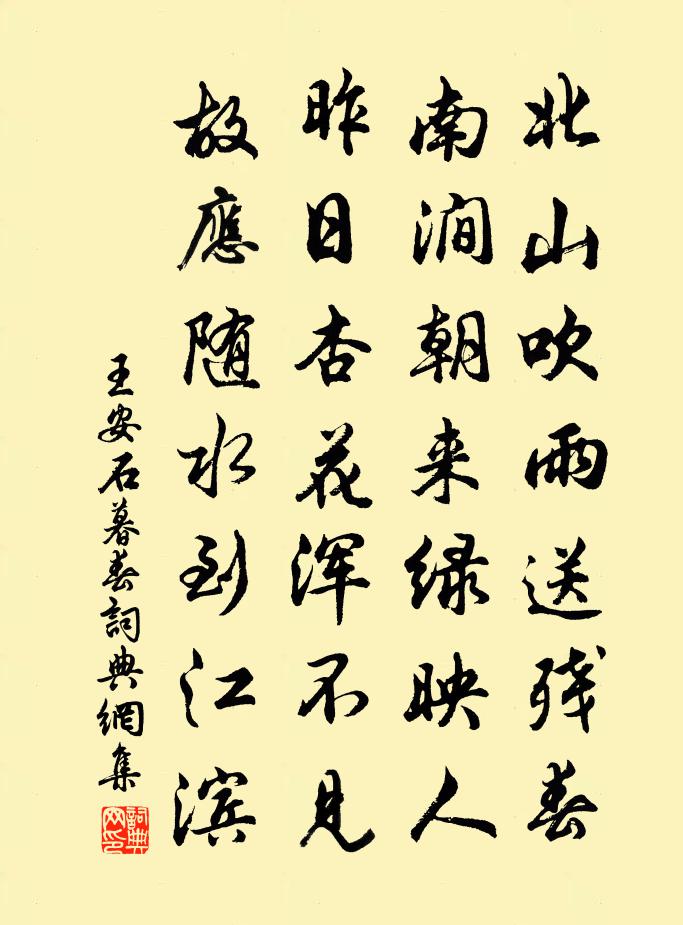 北山吹雨送残春
南涧朝来绿映人
昨日杏花浑不见
故應随水到江滨
王安石暮春詞典網集
詞典
网印